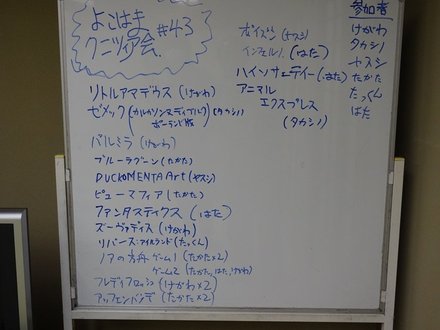 よこはま
クニツィア会 #43
リトルアマデウス (けがわ)
ゼメック (カルカソンヌディプルク ポーランド版) (タカシノ)
パルミラ (けがわ)
ブルーラグーン (たかた)
DUCKOMENTA Art (ヤスシ)
ピューマフィア (たかた)
ファンタスティクス (はた)
ズーヴァディス (けがわ)
リバース:アイルランド (たっくん)
ノアの方舟 ゲーム1 (たかた×2)
ゲーム2 (たかた, はた, けがわ)
フレディフロッシュ (けがわ×2)
アッフェンバンデ (たかた×2)
ポイズン (ヤスシ)
インフェルノ (はた)
ハイソサエティー (はた)
アニマル
エクスプレス
(タカシノ)
参加者
けがわ
タカシノ
ヤスシ
たかた
たっくん
はた